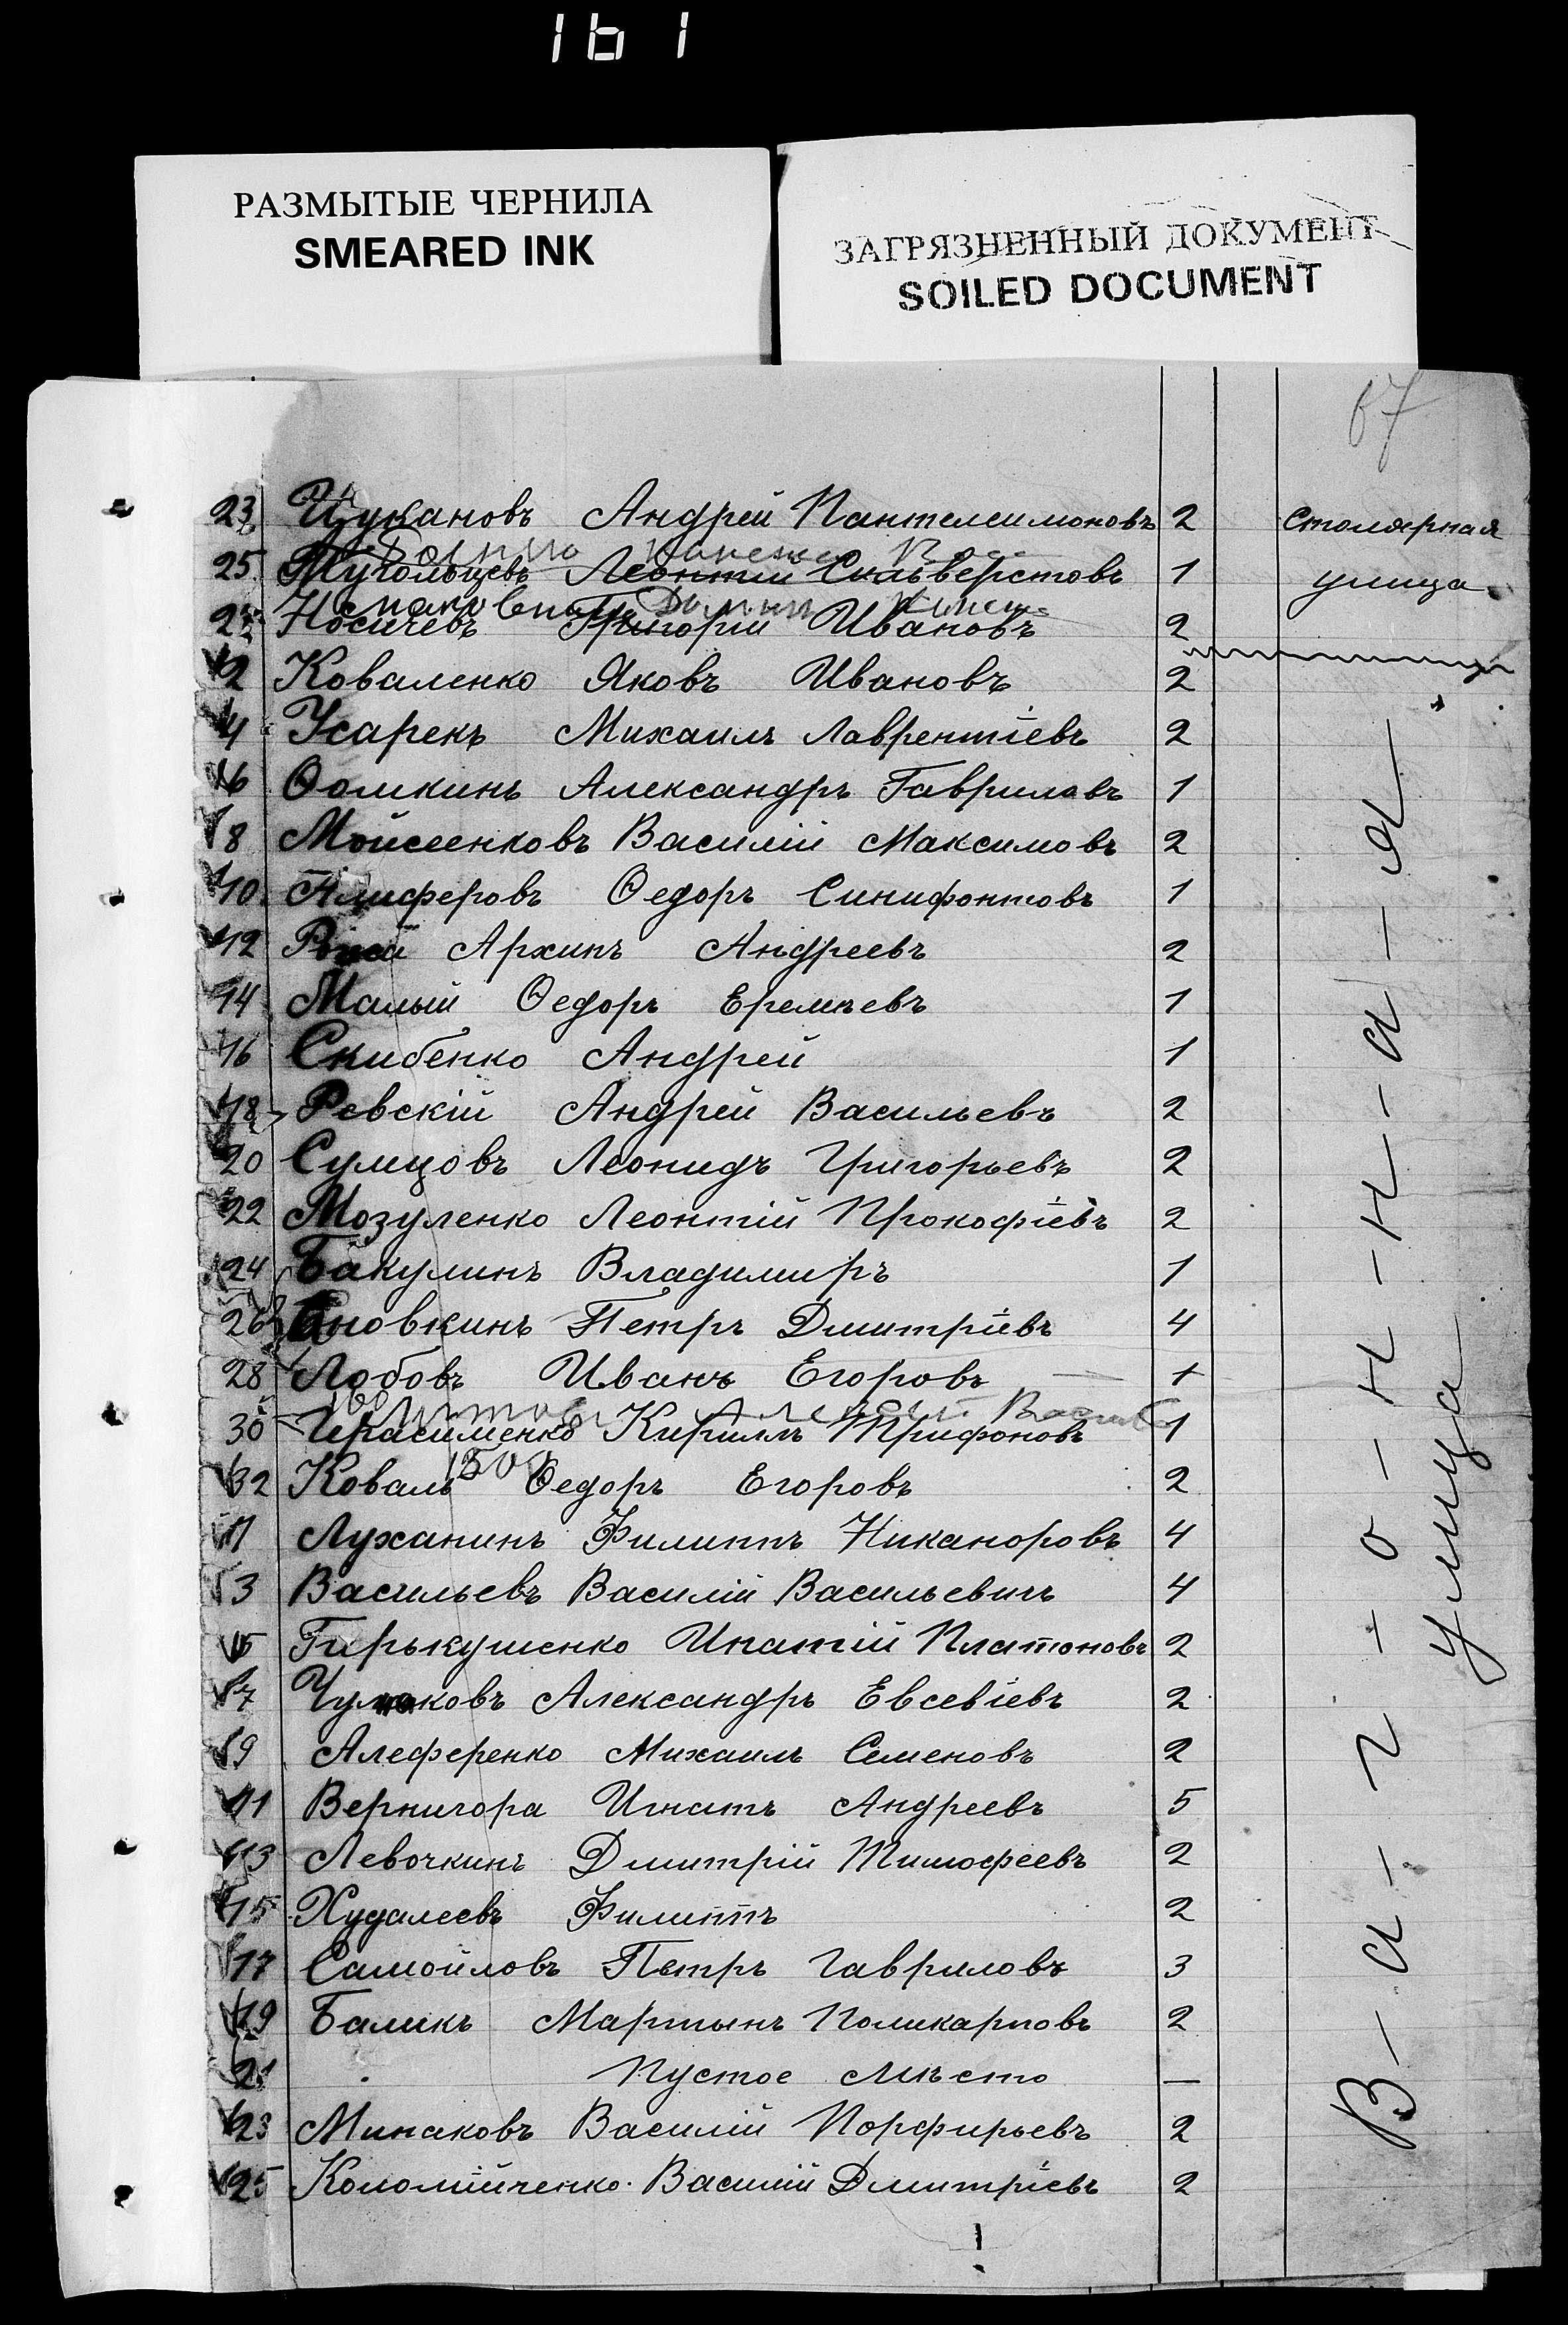 161
РАЗМЫТЫЕ ЧЕРНИЛА
SMEARED INK
ЗАГРЯЗНЕННЫЙ ДОКУМЕНТ
SOILED DOCUMENT
67
23 Цукановъ Андрей Пантелеимоновъ 2 Столярная
25 Леонтій 1 улица
27 Носичевъ Григорій Ивановъ 2
2 Коваленко Яковъ Ивановъ 2
4 Усарекъ Михаилъ Лаврентіевъ 2
6 Ѳомкинъ Александръ Гавриловъ 1
8 Мойсеенковъ Василій Максимовъ 2
10 Алиферовъ Ѳедоръ Синифонтовъ 1
12 Архипъ Андреевъ 2
14 Малый Ѳедоръ Еремѣевъ 1
16 Скибенко Андрей 1
18 Ревскій Андрей Васильевъ 2
20 Сумцовъ Леонидъ Григорьевъ 2
22 Мозуленко Леонтій Прокофіевъ 2
24 Бакулинъ Владимиръ 1
26 Петръ Дмитріевъ 4
28 Лобовъ Иванъ Егоровъ 1
30 Герасименко Кириллъ Трифоновъ 1
32 Коваль Ѳедоръ Егоровъ 2
1 Луханинъ Филиппъ Никаноровъ 4
3 Васильевъ Василій Васильевичъ 4
5 Гирькушенко Ипатій Платоновъ 2
7 Чумаковъ Александръ Евсевіевъ 2
9 Алеференко Михаилъ Семеновъ 2
11 Вернигора Игнатъ Андреевъ 5
13 Левочкинъ Дмитрій Тимофеевъ 2
15 Худалеевъ Филиппъ 2
17 Самойловъ Петръ Гавриловъ 3
19 Баликъ Мартынъ Поликарповъ 2
21 Пустое мѣсто —
23 Минаковъ Василій Порфирьевъ 2
25 Коломійченко Василій Дмитріевъ 2
В-а-г-о-н-н-а-я
улица